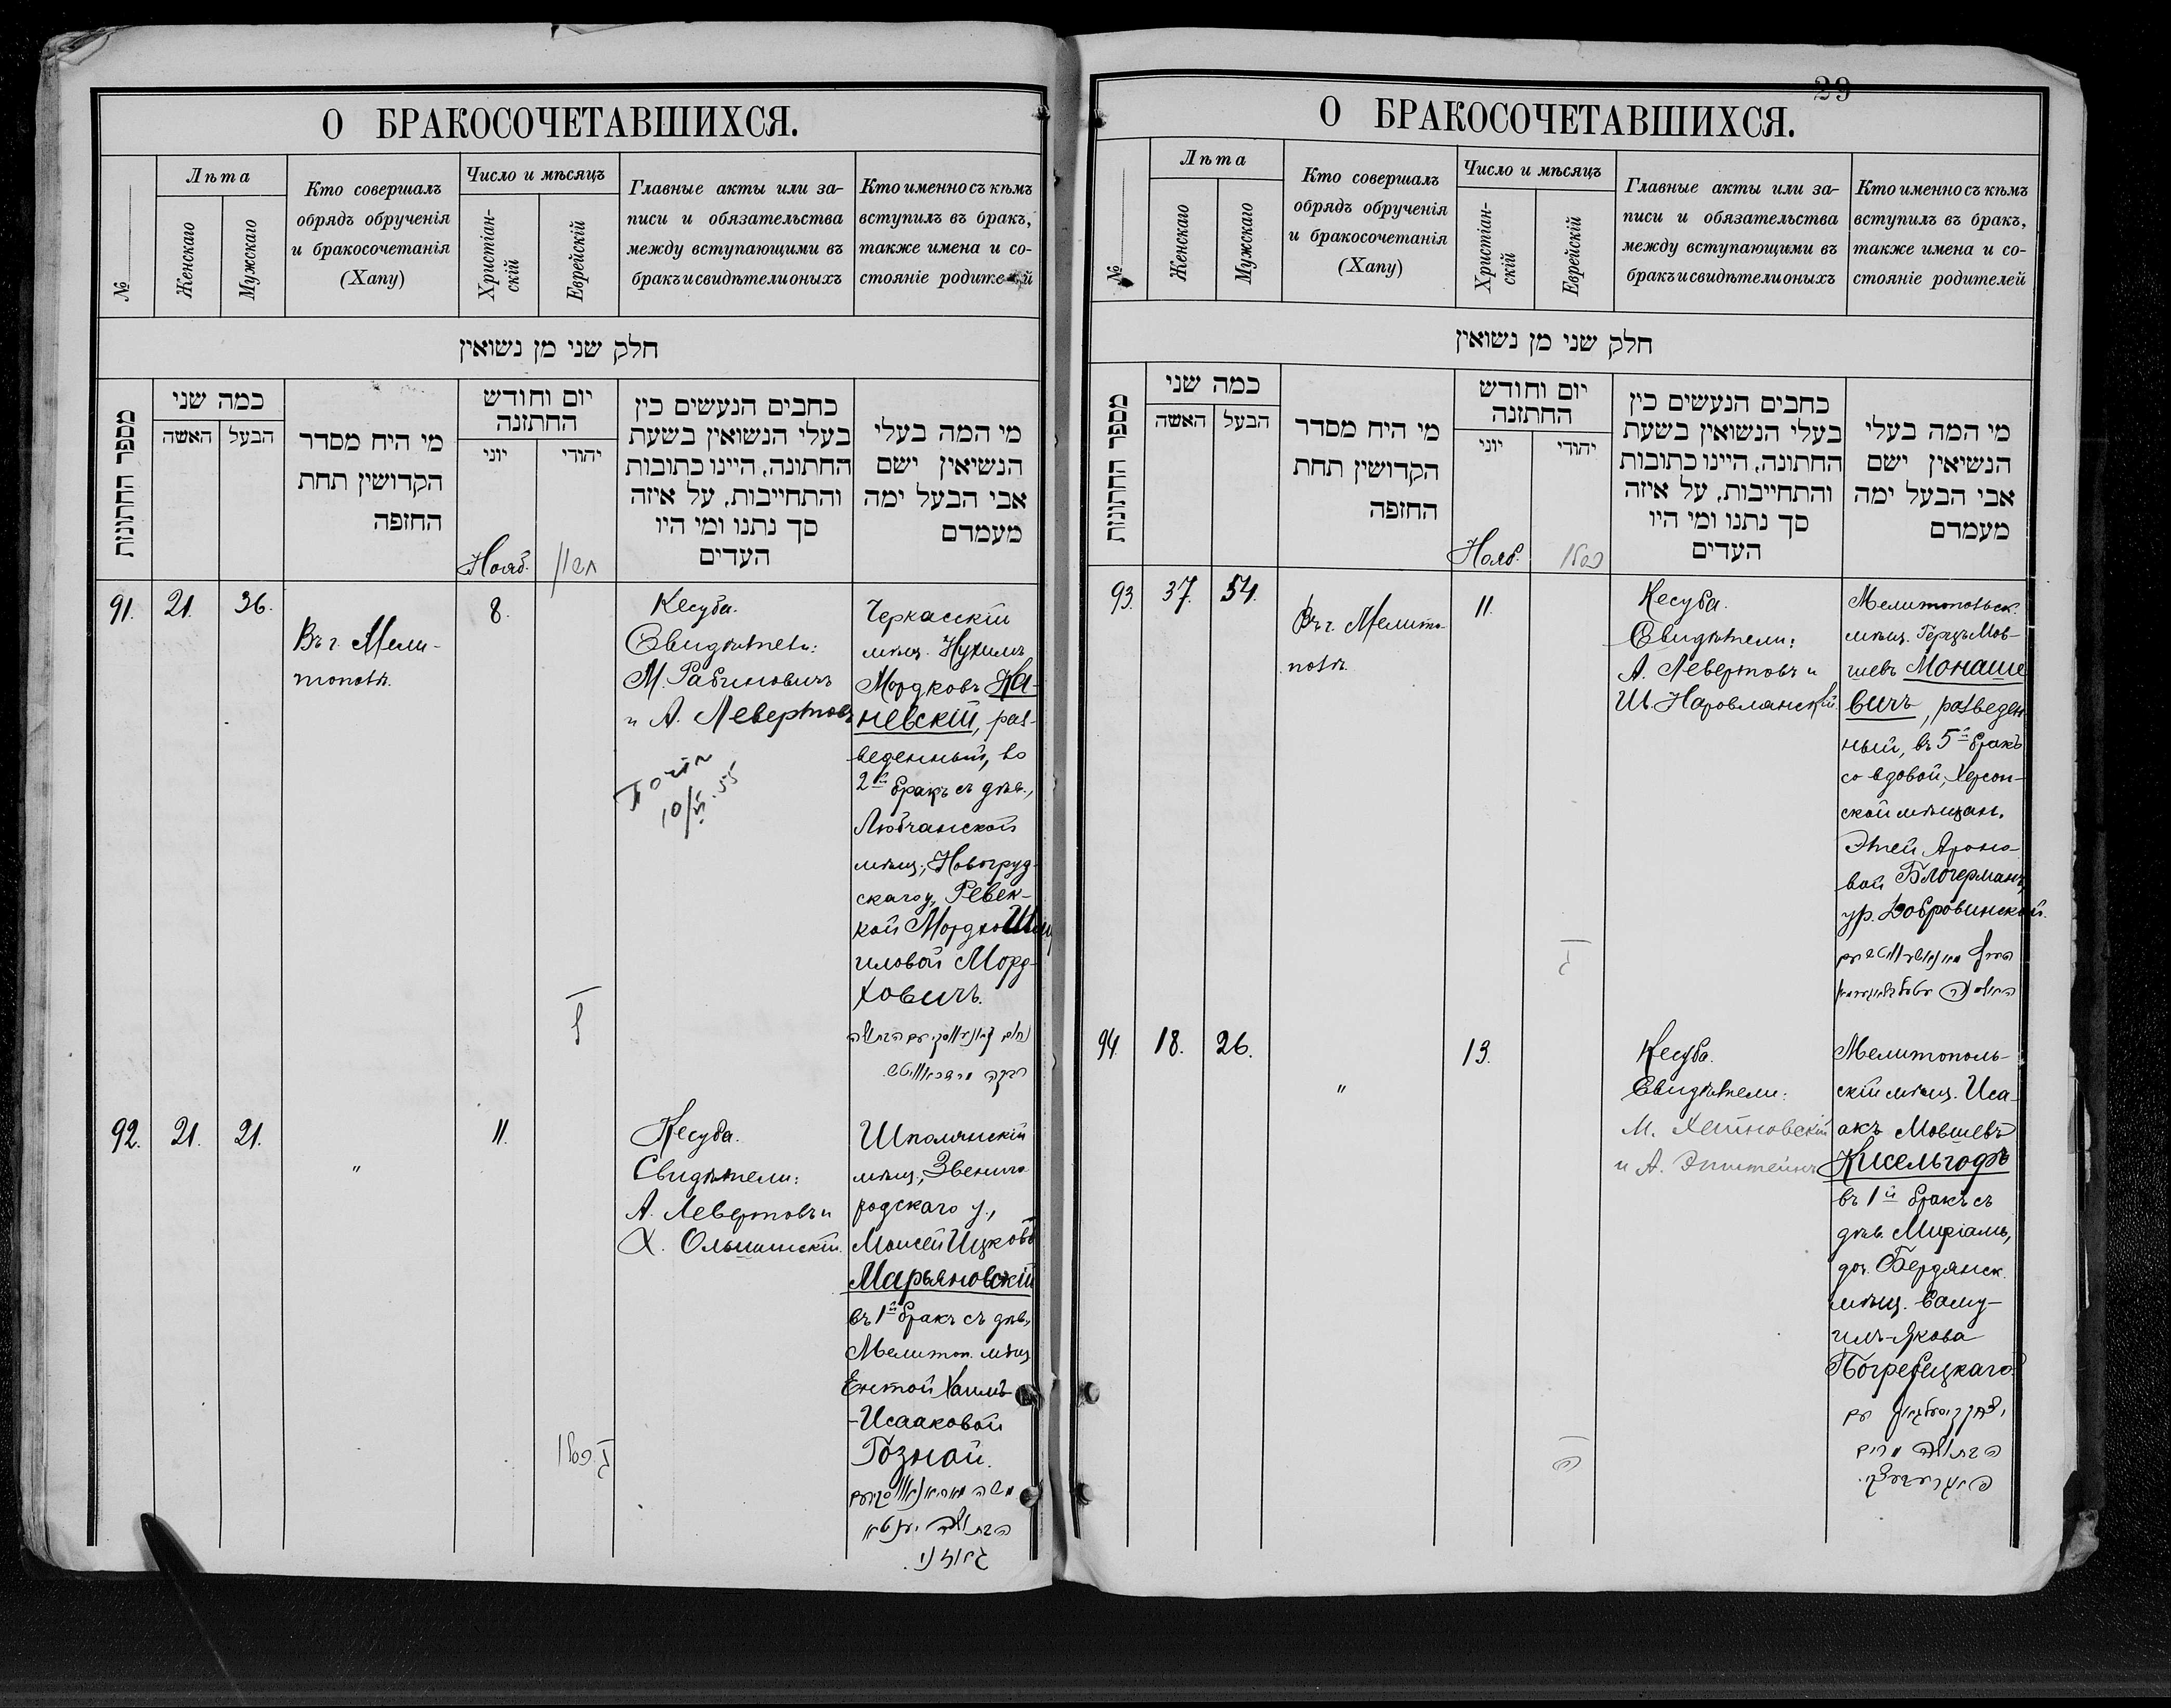 О БРАКОСОЧЕТАВШИХСЯ.
№
Лѣта
Женскаго
Мужскаго
Кто совершалъ
обрядъ обрученія
и бракосочетанія
(Хапу)
Число и мѣсяцъ
Христіан-
скій
Еврейскій
Главные акты или за-
писи и обязательства
между вступающими въ
бракъ и свидѣтели оныхъ
Кто именно съ кѣмъ
вступилъ въ бракъ,
также имена и со-
стояніе родителей
חלק שני מן נשואין
מספר החתונות
כמה שני
האשה
הבעל
מי היח מסדר
הקדושין תחת
החופה
יום וחודש
החתונה
יוני
יהודי
כתבים הנעשים כין
בעלי הנשואין בשעת
החתונה, היינו כתובות
והתחייבות, על איזה
סך נתנו ומי היו
העדים
מי המה בעלי
הנשיאין ישם
אבי הבעל ימה
מעמדם
Нояб.
חשון
91.
21.
36.
Въ г. Мели-
тополѣ.
8.
Кесуба.
Свидѣтели:
М. Рабиновичъ
и А. Левертовъ
10/VI.55
Черкасскій
мѣщ. Нухимъ
Мордковъ Ка-
невскій, раз-
веденный, во
2й бракъ съ дѣв.,
Любчанской
мѣщ., Новогруд-
скаго у., Ревек-
кой Мордко Шму
иловой Морд-
ховичъ.
92.
21.
21.
"
11.
ג כסלו
Кесуба.
Свидѣтели:
А. Левертовъ и
Х. Ольшанскій.
Шполянскій
мѣщ., Звениго
родскаго у.,
Моисей Ицковъ
Марьяновскій
въ 1й бракъ съ дѣв.,
Мелитоп. мѣщ
Ентой Хаимъ
-Исааковой
Гозной.
29
О БРАКОСОЧЕТАВШИХСЯ.
№
Лѣта
Женскаго
Мужскаго
Кто совершалъ
обрядъ обрученія
и бракосочетанія
(Хапу)
Число и мѣсяцъ
Христіан-
скій
Еврейскій
Главные акты или за-
писи и обязательства
между вступающими въ
бракъ и свидѣтели оныхъ
Кто именно съ кѣмъ
вступилъ въ бракъ,
также имена и со-
стояніе родителей
חלק שני מן נשואין
מספר החתונות
כמה שני
האשה
הבעל
מי היח מסדר
הקדושין תחת
החופה
יום וחודש
החתונה
יוני
יהודי
כתבים הנעשים כין
בעלי הנשואין בשעת
החתונה, היינו כתובות
והתחייבות, על איזה
סך נתנו ומי היו
העדים
מי המה בעלי
הנשיאין ישם
אבי הבעל ימה
מעמדם
Нояб.
כסלו
93.
37.
54.
Въ г. Мелито-
полѣ.
11.
ג
Кесуба.
Свидѣтели:
А. Левертовъ и
Ш. Наровлянскій.
Мелитопольск
мѣщ. Герцъ Мов-
шевъ Монаше
вичъ, разведен
ный, въ 5й бракъ
со вдовой, Херсон-
ской мѣщан.
Этей Ароно-
вой Блогерманъ,
ур. Добровинской.
94.
18.
26.
"
13.
ה
Кесуба.
Свидѣтели:
М. Хейновскій
и А. Эпштейнъ
Мелитополь-
скій мѣщ. Иса-
акъ Мовшевъ
Кисельгофъ
въ 1й бракъ съ
дѣв. Миріамъ,
доч. Бердянск.
мѣщ. Саму-
илъ-Якова
Погребецкаго.
יצחק קיסעלגאף עם
הבתולה מרים
פאגרעבעצקי.